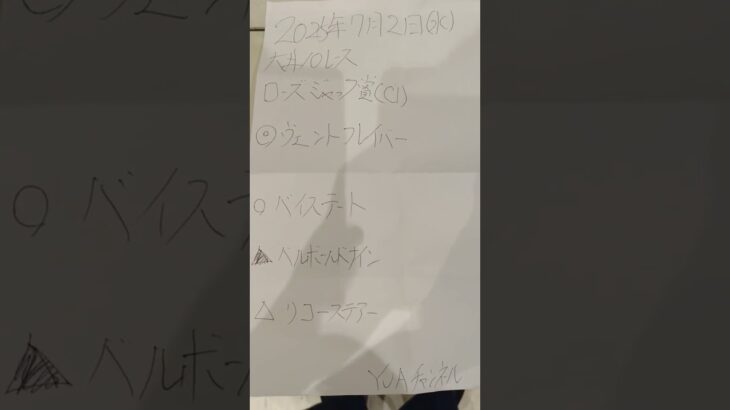 2025年7月2日(水)
大井10レース
ローズジャック賞(C1)
◎ヴェントフレイバー
○ベイステート
▲ベルボールドナイン
△リコーステアー
YUAチャンネル